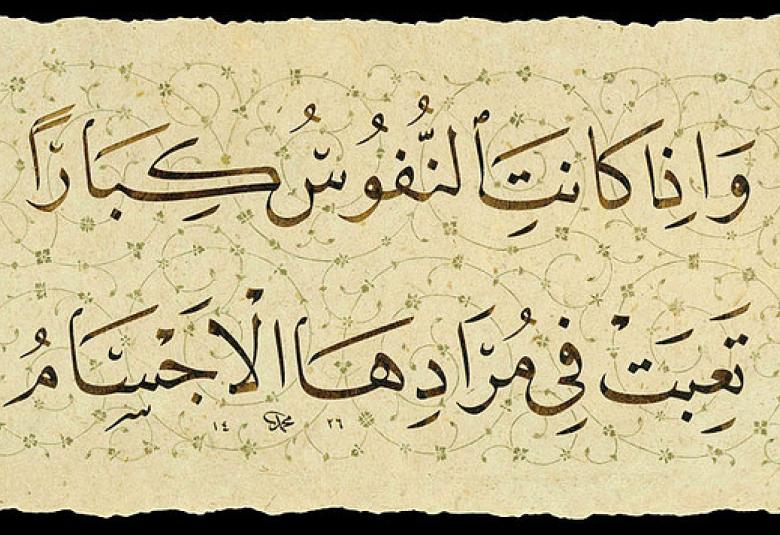 وَاِذَا كَانَتِ ٱلنُّفُوسُ كِبَارًا
تَعِبَتْ فِي مُرَادِهَا الْاَجْسَامُ
١٤ محمد ٢٦